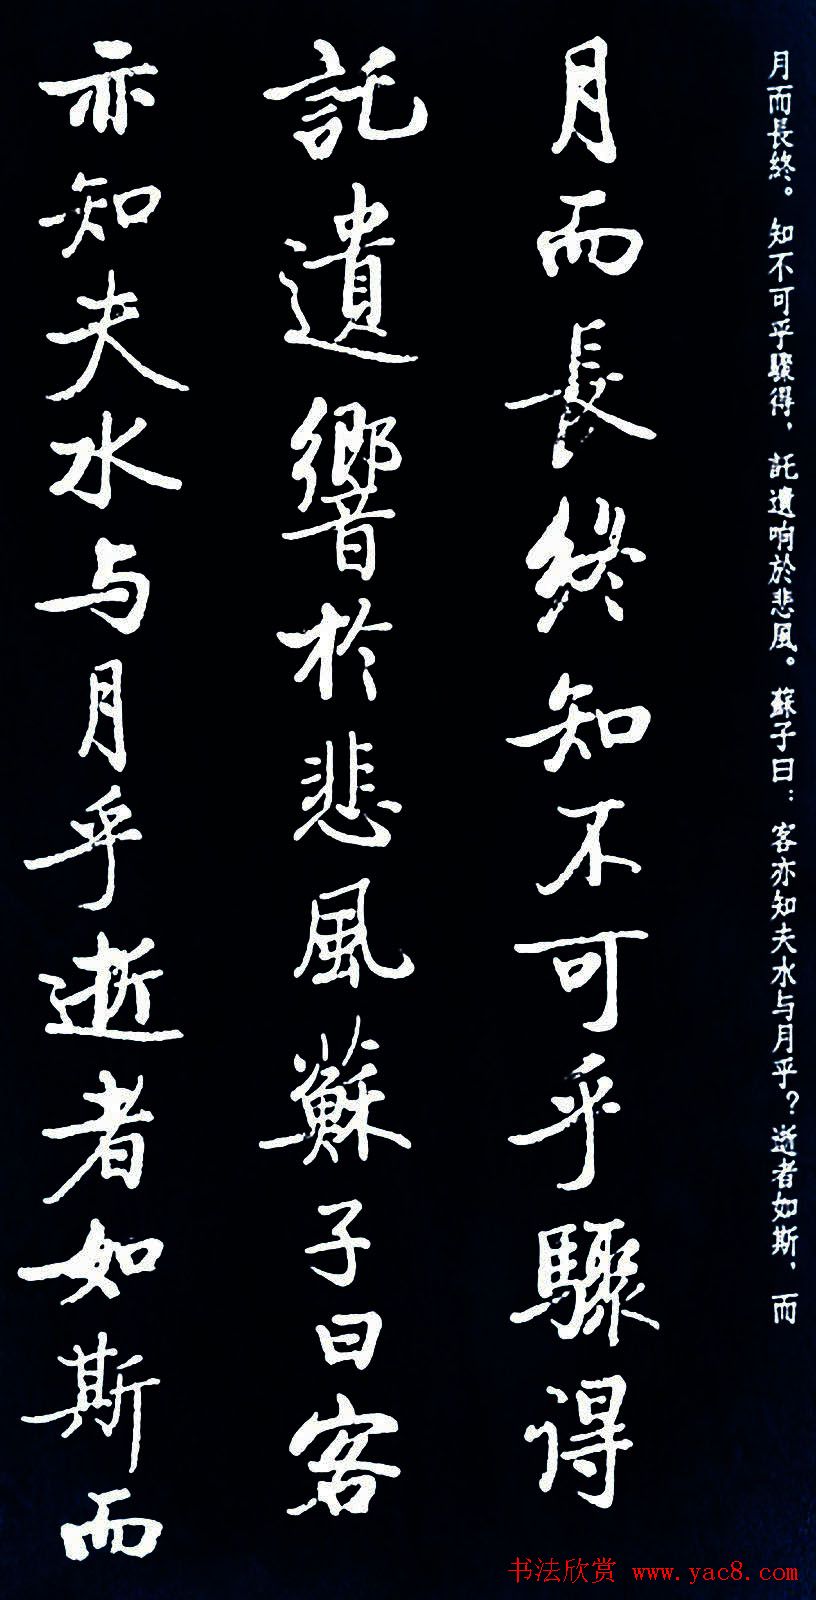 月而長終。知不可乎驟得，託遺响於悲風。蘇子曰：客亦知夫水与月乎？逝者如斯，而
月而長終知不可乎驟得
託遺響於悲風蘇子曰客
亦知夫水与月乎逝者如斯而
书法欣赏 www.yac8.com